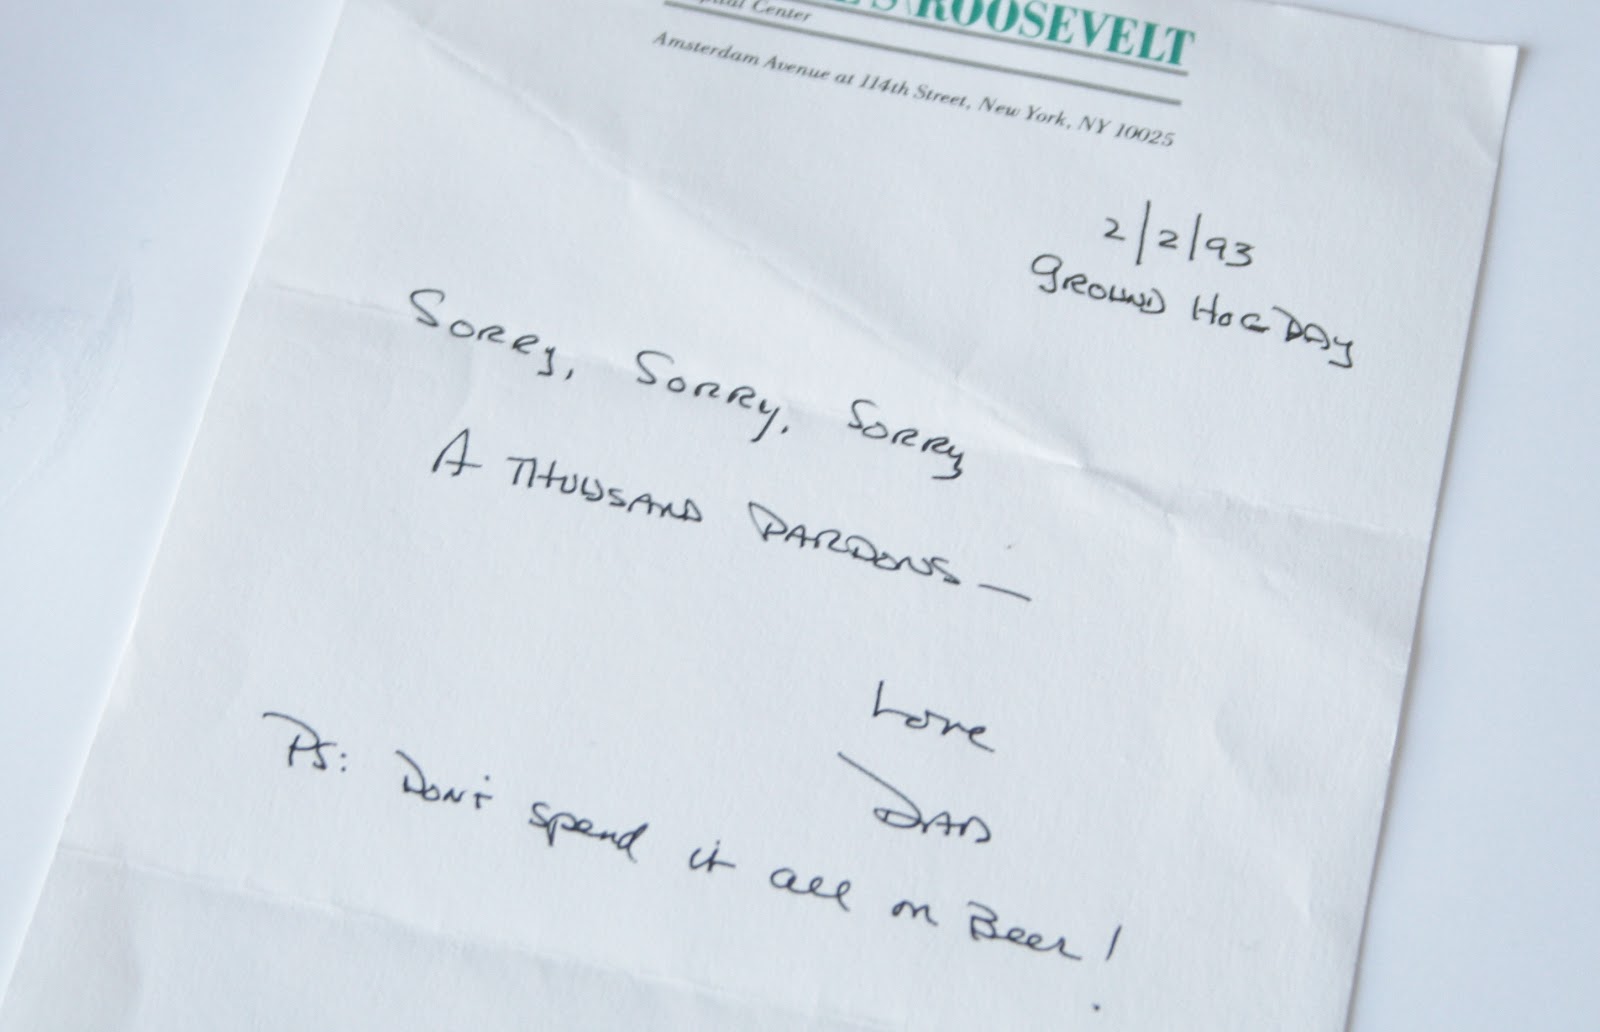 ROOSEVELT
Center
Amsterdam Avenue at 114th Street, New York, NY 10025
2/2/93
GROUND HOG DAY
SORRY, SORRY, SORRY
A THOUSAND PARDONS —
Love
DAD
PS: DON'T spend it all on Beer!